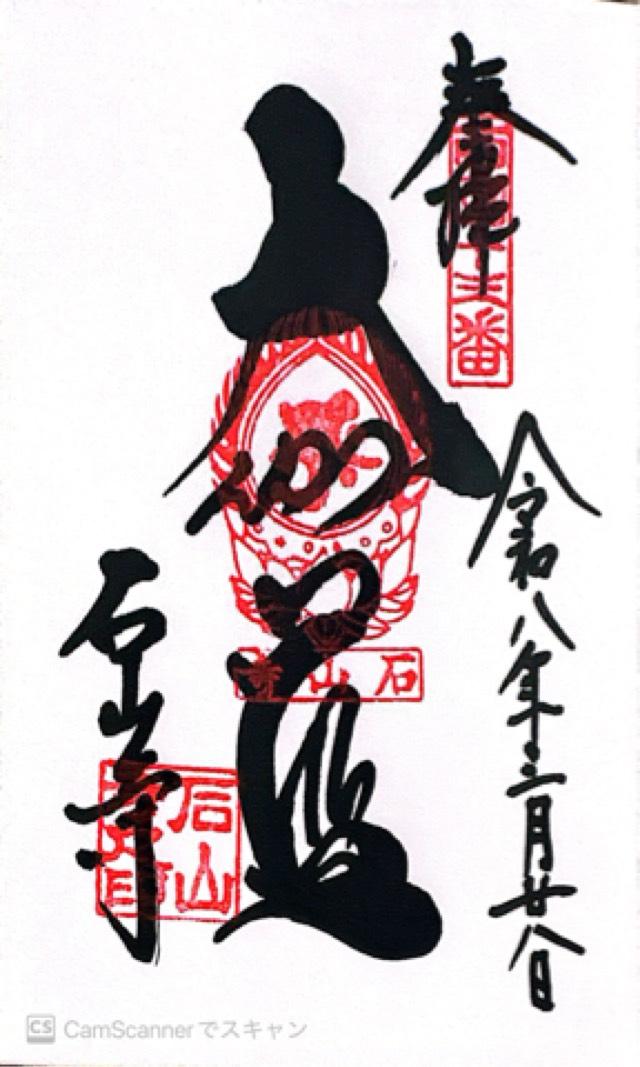 奉拝
三番
令和八年三月廿八日
大伽藍
石山寺
石山寺
石山寺印
CS CamScannerでスキャン